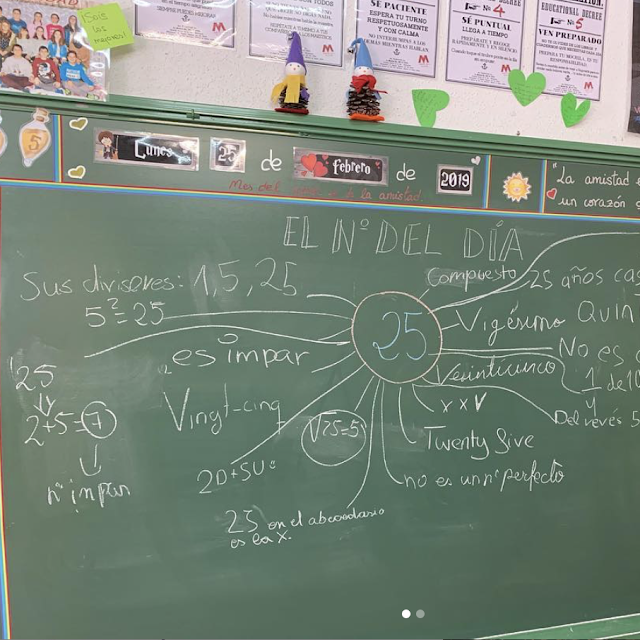 ¡Sois los mejores!
SIEMPRE PIDO Y DIGO
SÉ PACIENTE
ESPERA TU TURNO
RESPETUOSAMENTE
Y COMO
NO INTERRUMPIR A LOS
DEMÁS MIENTRAS HABLAN
Nº 4
SÉ PUNTUAL
LLEGA A TIEMPO
EDUCATIONAL DECREE
Nº 5
VEN PREPARADO
5
Lunes 25 de febrero de 2019
Mes del amor y de la amistad.
"La amistad
un corazón
EL Nº DEL DÍA
Sus divisores: 1, 5, 25
5² = 25
es impar
25
2+5=7
nº impar
Vingt-cinq
2D+5U
√25=5
25 en el abecedario
es la X.
25
Compuesto
25 años
Vigésimo
QUIN
No es
Veinticinco
1
de 1
y
XXV
Del revés 5
Twenty five
no es un nº perfecto